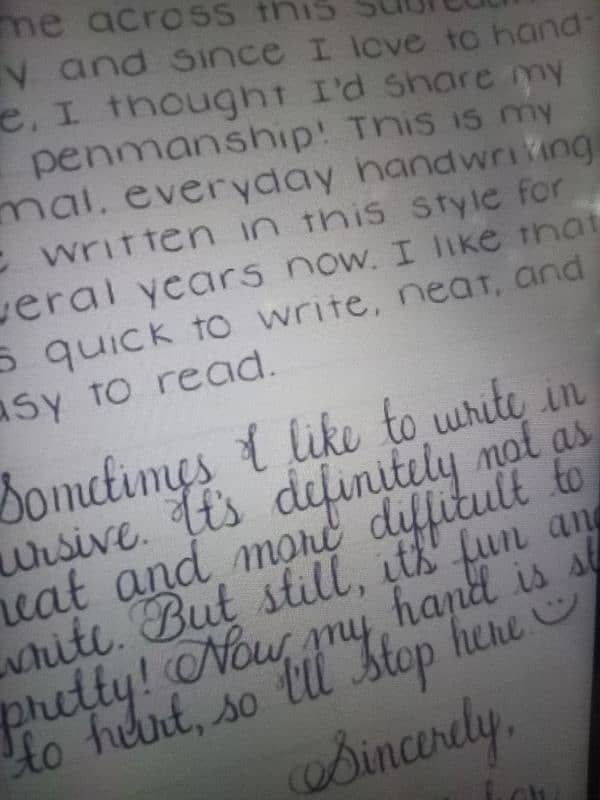 me across this
y and since I love to hand-
e, I thought I'd share my
penmanship! This is my
mal, everyday handwriting
written in this style for
veral years now. I like that
s quick to write, neat, and
asy to read.
Sometimes I like to write in
ursive. It's definitely not as
neat and more difficult to
write. But still, it's fun and
pretty! Now my hand is st
to hurt, so I'll stop here ☺
Sincerely,